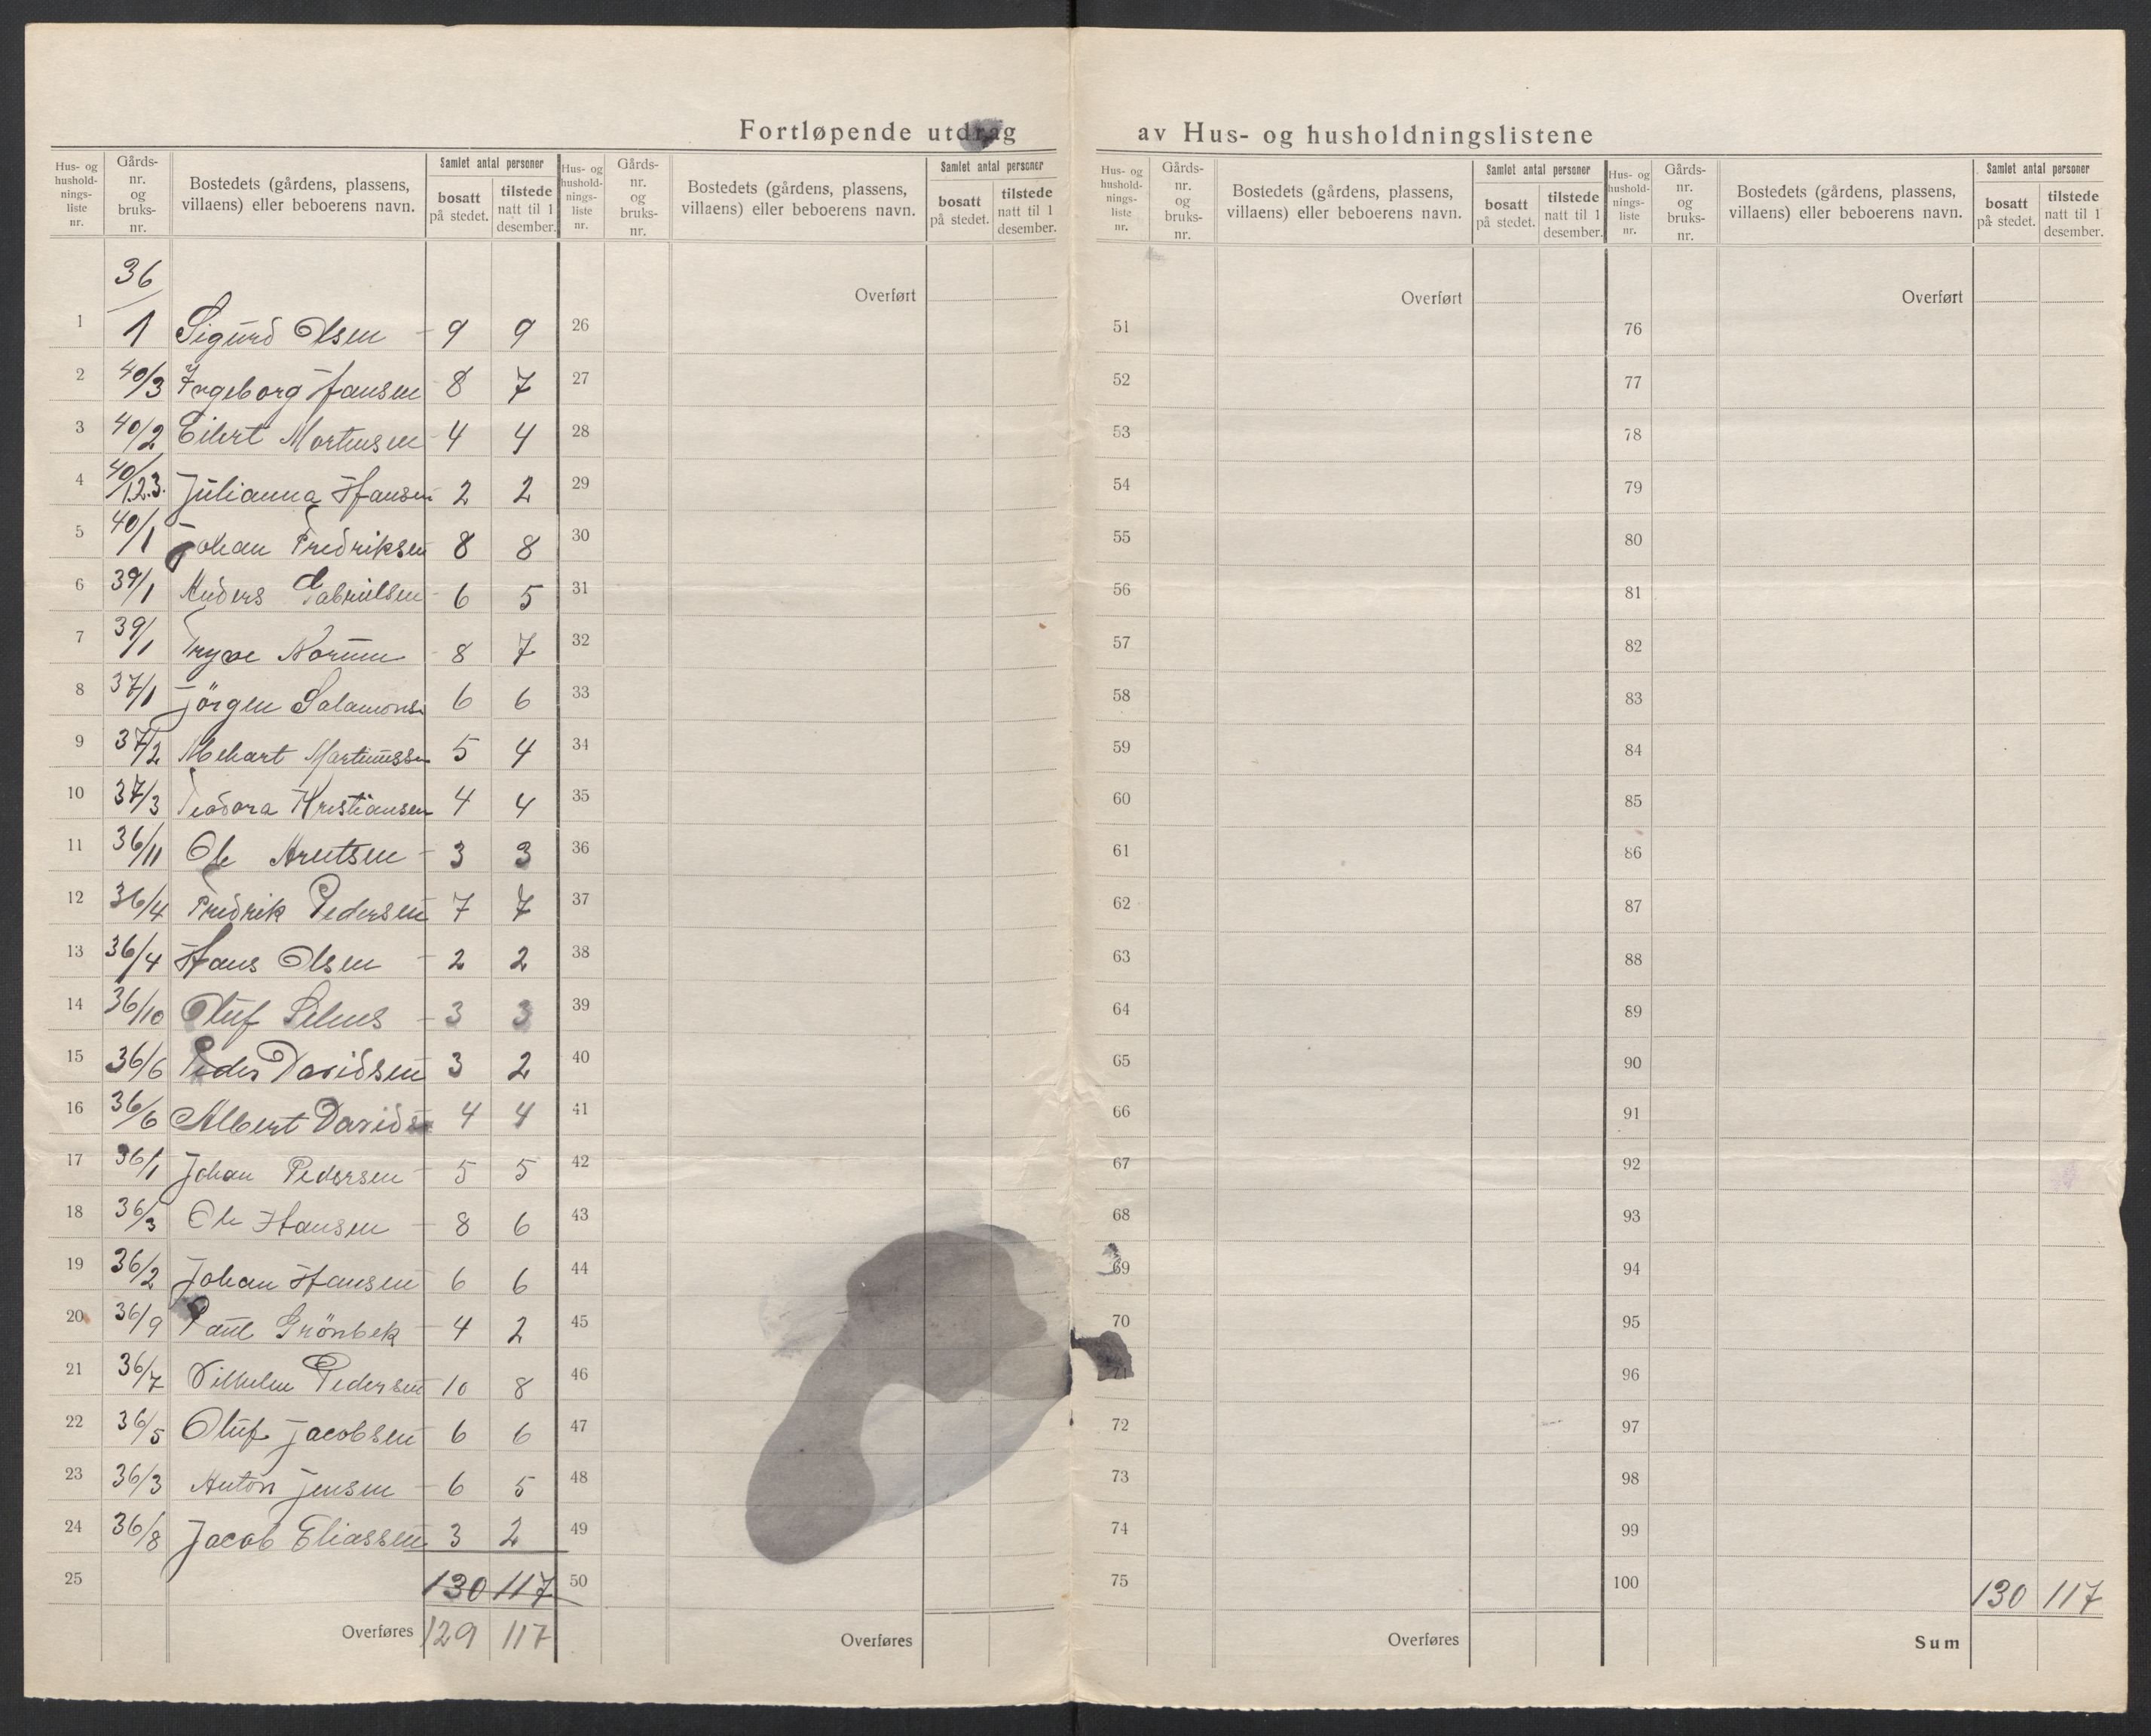 Fortløpende utdrag av Hus- og husholdningslistene
Hus- og husholdnings-liste nr. Gårds-nr. og bruks-nr. Bostedets (gårdens, plassens, villaens) eller beboerens navn. Samlet antal personer bosatt på stedet. tilstede natt til 1 desember.
Hus- og husholdnings-liste nr. Gårds-nr. og bruks-nr. Bostedets (gårdens, plassens, villaens) eller beboerens navn. Samlet antal personer bosatt på stedet. tilstede natt til 1 desember.
Hus- og husholdnings-liste nr. Gårds-nr. og bruks-nr. Bostedets (gårdens, plassens, villaens) eller beboerens navn. Samlet antal personer bosatt på stedet. tilstede natt til 1 desember.
Hus- og husholdnings-liste nr. Gårds-nr. og bruks-nr. Bostedets (gårdens, plassens, villaens) eller beboerens navn. Samlet antal personer bosatt på stedet. tilstede natt til 1 desember.
36 Overført Overført Overført
1 1 Sigurd Olsen 9 9 26 51 76
2 40/3 Ingeborg Hansen 8 7 27 52 77
3 40/2 Eilert Mortensen 4 4 28 53 78
4 40/1.2.3. Julianna Hansen 2 2 29 54 79
5 40/1 Johan Fredriksen 8 8 30 55 80
6 39/1 Anders Gabrielsen 6 5 31 56 81
7 39/1 Tryve 8 7 32 57 82
8 37/1 Jörgen Salamons 6 6 33 58 83
9 37/2 Martinussen 5 4 34 59 84
10 37/3 Teodora Kristiansen 4 4 35 60 85
11 36/11 Ole 3 3 36 61 86
12 36/4 Fredrik Pedersen 7 7 37 62 87
13 36/4 Hans Olsen 2 2 38 63 88
14 36/10 Oluf 3 3 39 64 89
15 36/6 Peder Davidsen 3 2 40 65 90
16 36/6 Albert Davids 4 4 41 66 91
17 36/1 Johan Pedersen 5 5 42 67 92
18 36/3 Ole Hansen 8 6 43 68 93
19 36/2 Johan Hansen 6 6 44 69 94
20 36/9 Paul Grönbek 4 2 45 70 95
21 36/7 Vilhelm Pedersen 10 8 46 71 96
22 36/5 Oluf Jacobsen 6 6 47 72 97
23 36/3 Anton Jensen 6 5 48 73 98
24 36/8 Jacob Eliassen 3 2 49 74 99
25 130 117 50 75 100 130 117
Overføres 129 117 Overføres Overføres Sum